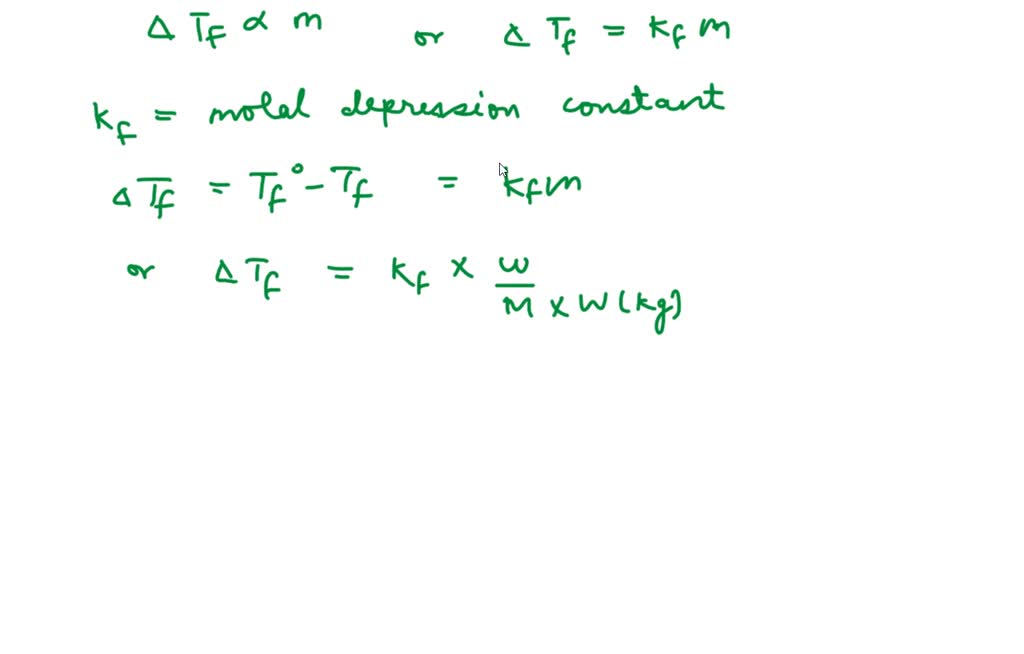 Δ Tf α m or Δ Tf = Kf m
Kf = molal depression constant
Δ Tf = Tf° - Tf = Kf m
or Δ Tf = Kf × w / M × W (kg)